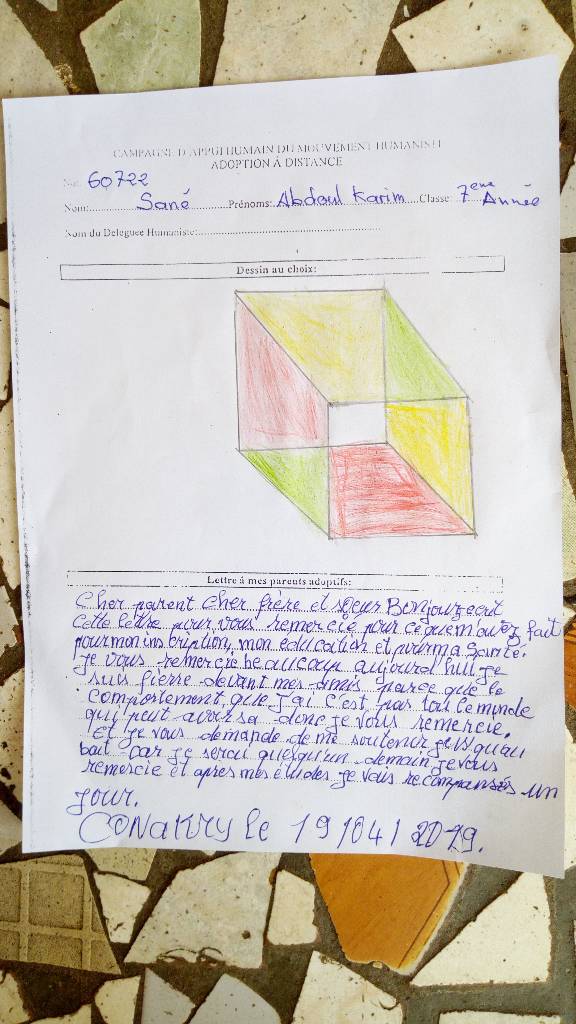 CAMPAGNE D'APPUI HUMAIN DU MOUVEMENT HUMANISTE
ADOPTION À DISTANCE
60722
Nom: Sané Prénoms: Abdoul Karim Classe: 7eme Année
Nom du Deleguee Humaniste:
Dessin au choix:
Lettre á mes parents adoptifs:
Cher parent cher frère et soeur Bonjour jecrit
Cette lettre pour vous remercié pour ce que m'avez fait
pour mon inscription, mon éducation et pour ma Santé.
je vous remercie beaucoup aujourd hui je
suis fierre devant mes amis parce que le
comportement que j'ai c'est pas tou le monde
qui peut avoir sa donc je vous remercie.
Et je vous demande de me soutenir jusqu'au
bait car je serai quelqu'un demain je vous
remercie et apres mes études je vous recompansés un
jour.
CONAKRY le 19/04/2019.